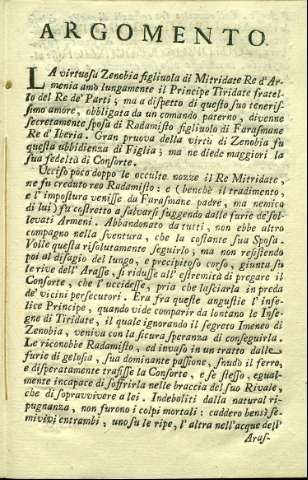 ARGOMENTO.
LA virtuosa Zenobia figliuola di Mitridate Re d'Ar-
menia amò lungamente il Principe Tiridate fratel-
lo del Re de' Parti; ma a dispetto di questo suo teneris-
simo amore, obbligata da un comando paterno, divenne
secretamente sposa di Radamisto figliuolo di Farasmane
Re d'Iberia. Gran pruova della virtù di Zenobia fu
questa ubbidienza di Figlia; ma ne diede maggiori la
sua fedeltà di Consorte.
Ucciso poco doppo le occulte nozze il Re Mitridate,
ne fu creduto reo Radamisto: e (benchè il tradimento,
e l'impostura venisse da Farasmane padre, ma nemico
di lui) fu costretto a salvarsi fuggendo dalle furie de' sol-
levati Armeni. Abbandonato da tutti, non ebbe altro
compagno nella sventura, che la costante sua Sposa.
Volle questa risolutamente seguirlo; ma non resistendo
poi al disagio del lungo, e precipitoso corso, giunta su
le rive dell'Arasse, si ridusse all'estremità di pregare il
Consorte, che l'uccidesse, pria che lasciarla in preda
de' vicini persecutori. Era fra queste angustie l'infe-
lice Principe, quando vide comparir da lontano le Inse-
gne di Tiridate, il quale ignorando il segreto Imeneo di
Zenobia, veniva con la sicura speranza di conseguirla.
Le riconobbe Radamisto, ed invaso in un tratto dalle
furie di gelosia, sua dominante passione, snudò il ferro,
e disperatamente trafisse la Consorte, e sè stesso, egual-
mente incapace di soffrirla nelle braccia del suo Rivale,
che di sopravvivere a lei. Indeboliti dalla natural ri-
pugnanza, non furono i colpi mortali: caddero bensì se-
mivivi entrambi, uno su le ripe, l'altra nell'acque dell'
Aras-